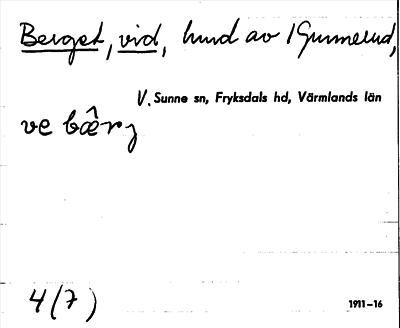 Berget, vid, lund av 1 Gunnerud,
V. Sunne sn, Fryksdals hd, Värmlands län
ve bæ̂rʒ
4 (7)
1911–16